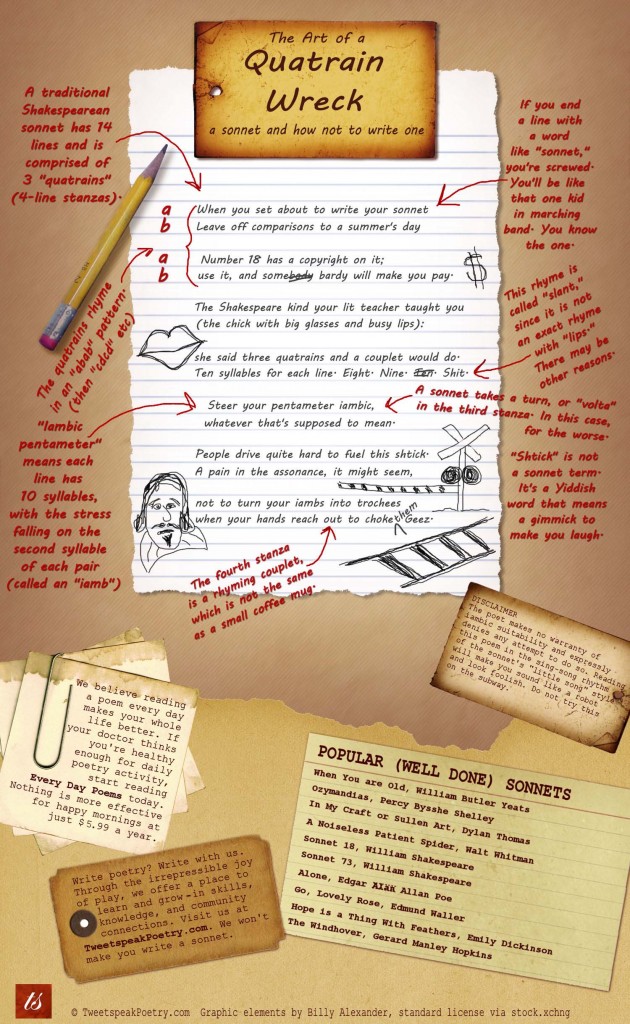 The Art of a
Quatrain
Wreck
a sonnet and how not to write one
A traditional
Shakespearean
sonnet has 14
lines and is
comprised of
3 "quatrains"
(4-line stanzas).
If you end
a line with
a word
like "sonnet,"
you're screwed.
You'll be like
that one kid
in marching
band. You know
the one.
a
When you set about to write your sonnet
b
Leave off comparisons to a summer's day
a
Number 18 has a copyright on it;
b
use it, and somebody bardy will make you pay.
$
The quatrains rhyme
in an "abab" pattern.
(then "cdcd" etc)
The Shakespeare kind your lit teacher taught you
(the chick with big glasses and busy lips):
she said three quatrains and a couplet would do.
Ten syllables for each line. Eight. Nine. Ten. Shit.
This rhyme is
called "slant,"
since it is not
an exact rhyme
with "lips."
There may be
other reasons.
Steer your pentameter iambic,
whatever that's supposed to mean.
A sonnet takes a turn, or "volta"
in the third stanza. In this case,
for the worse.
People drive quite hard to fuel this shtick.
A pain in the assonance, it might seem,
"Iambic
pentameter"
means each
line has
10 syllables,
with the stress
falling on the
second syllable
of each pair
(called an "iamb")
"Shtick" is not
a sonnet term.
It's a Yiddish
word that means
a gimmick to
make you laugh.
not to turn your iambs into trochees
when your hands reach out to choke them Geez.
The fourth stanza
is a rhyming couplet,
which is not the same
as a small coffee mug.
DISCLAIMER
The poet makes no warranty of
iambic suitability and expressly
denies any attempt to do so. Reading
this poem in the sing-song rhythm
of the sonnet's "little song" style
will make you sound like a robot
and look foolish. Do not try this
on the subway.
We believe reading
a poem every day
makes your whole
life better. If
your doctor thinks
you're healthy
enough for daily
poetry activity,
start reading
Every Day Poems today.
Nothing is more effective
for happy mornings at
just $5.99 a year.
POPULAR (WELL DONE) SONNETS
When You are Old, William Butler Yeats
Ozymandias, Percy Bysshe Shelley
In My Craft or Sullen Art, Dylan Thomas
A Noiseless Patient Spider, Walt Whitman
Sonnet 18, William Shakespeare
Sonnet 73, William Shakespeare
Alone, Edgar Allan Poe
Go, Lovely Rose, Edmund Waller
Hope is a Thing With Feathers, Emily Dickinson
The Windhover, Gerard Manley Hopkins
Write poetry? Write with us.
Through the irrepressible joy
of play, we offer a place to
learn and grow—in skills,
knowledge, and community
connections. Visit us at
TweetspeakPoetry.com. We won't
make you write a sonnet.
ts
© TweetspeakPoetry.com Graphic elements by Billy Alexander, standard license via stock.xchng